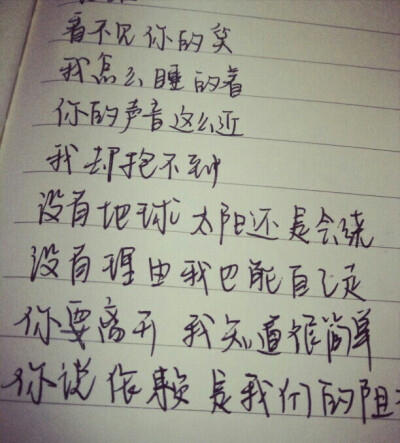 看不见你的笑
我怎么睡的着
你的声音这么近
我却抱不到
没有地球 太阳还是会绕
没有理由 我也能自己走
你要离开 我知道很简单
你说 依赖 是我们的阻